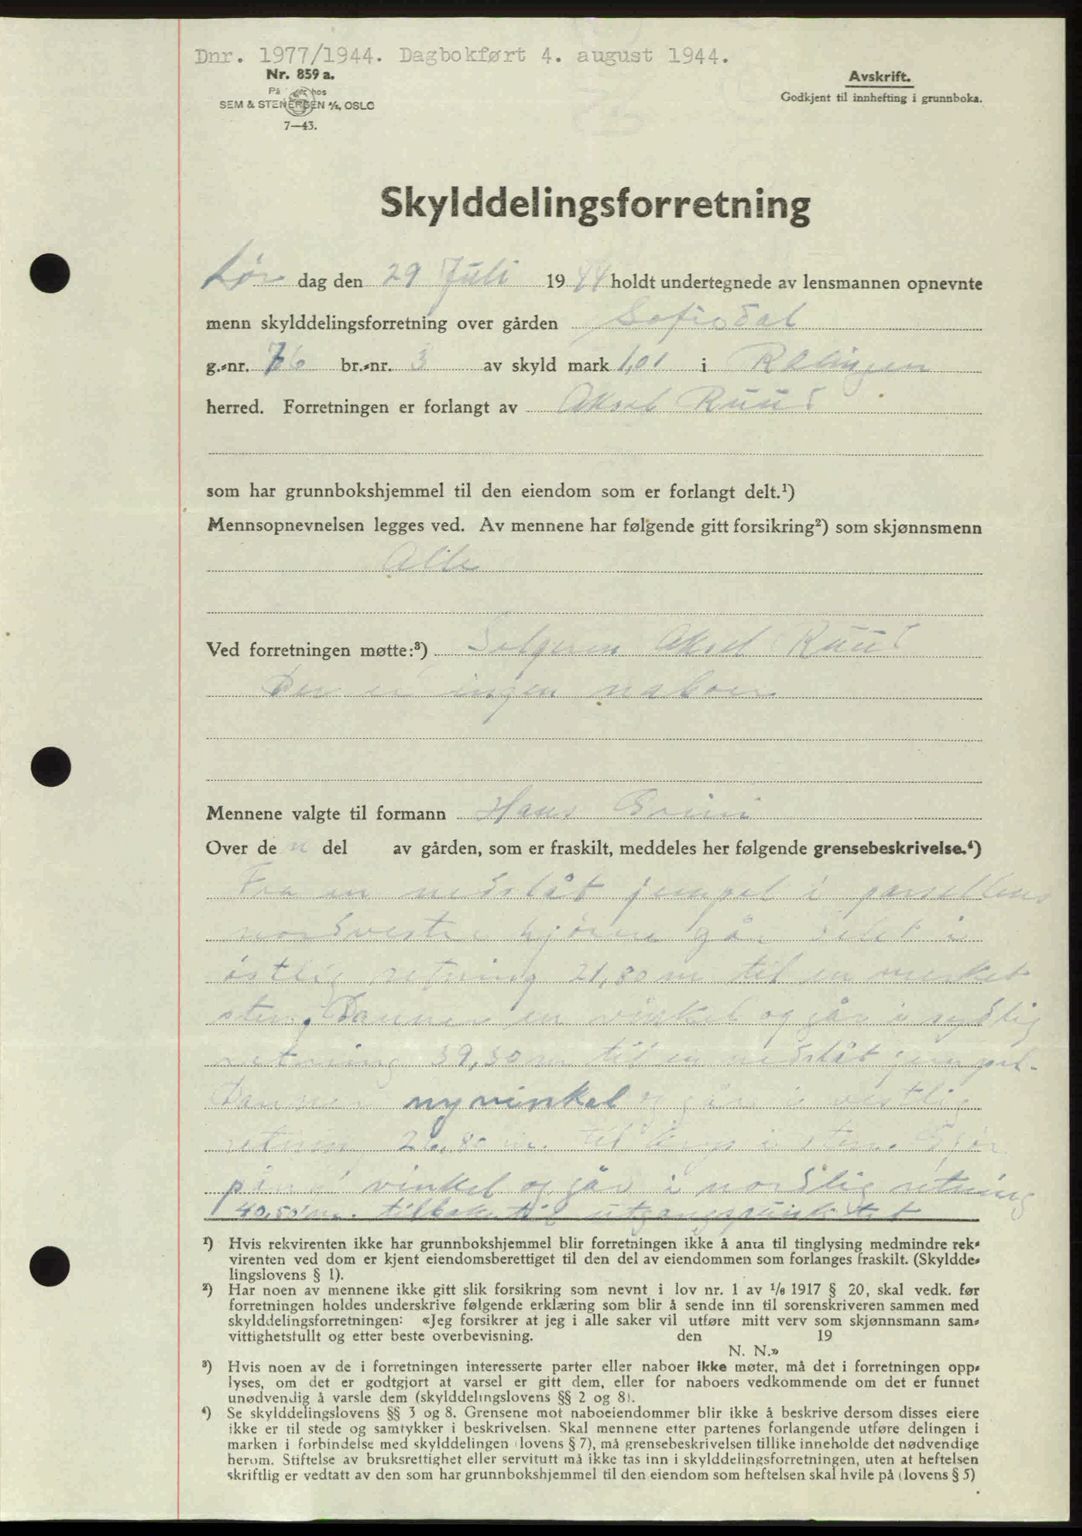 Dnr. 1977/1944. Dagbokført 4. august 1944.
Nr. 859 a.
På hos
SEM & STENERSEN A/S, OSLO
7—43.
Avskrift.
Godkjent til innhefting i grunnboka.
Skylddelingsforretning
Lør dag den 29 Juli 1944 holdt undertegnede av lensmannen opnevnte
menn skylddelingsforretning over gården Sofiedal
g.-nr. 76 br.-nr. 3 av skyld mark 1,01 i Rælingen
herred. Forretningen er forlangt av Aksel Ruud
som har grunnbokshjemmel til den eiendom som er forlangt delt.¹)
Mennsopnevnelsen legges ved. Av mennene har følgende gitt forsikring²) som skjønnsmenn
Alle
Ved forretningen møtte:³) Selgeren Aksel Ruud
Der er ingen naboer
Mennene valgte til formann Hans
Over den del av gården, som er fraskilt, meddeles her følgende grensebeskrivelse.⁴)
Fra en nedslåt jernpel i parsellens
nordvestre hjørne går delet i
østlig retning 21,80 m til en merket
sten. Danner en vinkel og går i sydlig
retning 39,30 m til en nedslåt jernpel.
Danner ny vinkel og går i vestlig
retning 26,80 m. til i sten.
vinkel og går i nordlig retning
40,50 m. tilbake til utgangspunktet
¹) Hvis rekvirenten ikke har grunnbokshjemmel blir forretningen ikke å anta til tinglysing medmindre rek-
virenten ved dom er kjent eiendomsberettiget til den del av eiendommen som forlanges fraskilt. (Skyldde-
lingslovens § 1).
²) Har noen av mennene ikke gitt slik forsikring som nevnt i lov nr. 1 av 1/6 1917 § 20, skal vedk. før
forretningen holdes underskrive følgende erklæring som blir å sende inn til sorenskriveren sammen med
skylddelingsforretningen: «Jeg forsikrer at jeg i alle saker vil utføre mitt verv som skjønnsmann sam-
vittighetsfullt og etter beste overbevisning. den 19
N. N.»
³) Hvis noen av de i forretningen interesserte parter eller naboer ikke møter, må det i forretningen opp-
lyses, om det er godtgjort at varsel er gitt dem, eller for naboers vedkommende om det er funnet
unødvendig å varsle dem (skylddelingslovens §§ 2 og 8).
⁴) Se skylddelingslovens §§ 3 og 8. Grensene mot naboeiendommer blir ikke å beskrive dersom disses eiere
ikke er til stede og samtykker i beskrivelsen. Skal mennene etter partenes forlangende utføre delingen i
marken i forbindelse med skylddelingen (lovens § 7), må grensebeskrivelsen tillike inneholde det nødvendige
herom. Stiftelse av bruksrettighet eller servitutt må ikke tas inn i skylddelingsforretningen, uten at heftelsen
skriftlig er vedtatt av den som har grunnbokshjemmel til den eiendom som heftelsen skal hvile på (lovens § 5)